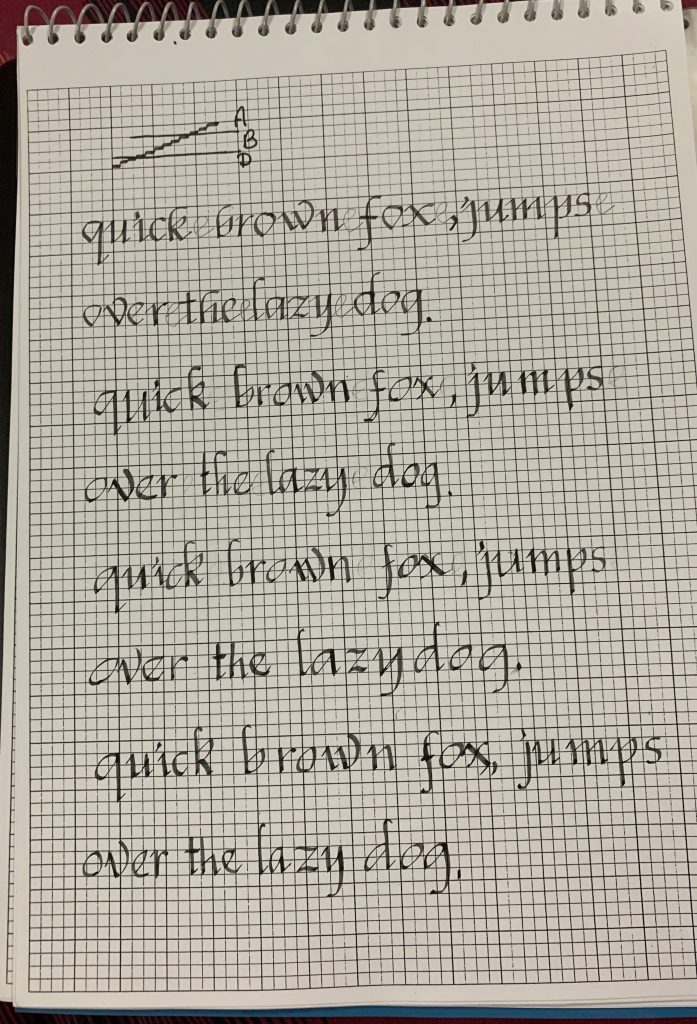 A
B
D
quick brown fox, jumps
over the lazy dog.
quick brown fox, jumps
over the lazy dog.
quick brown fox, jumps
over the lazy dog.
quick brown fox, jumps
over the lazy dog.